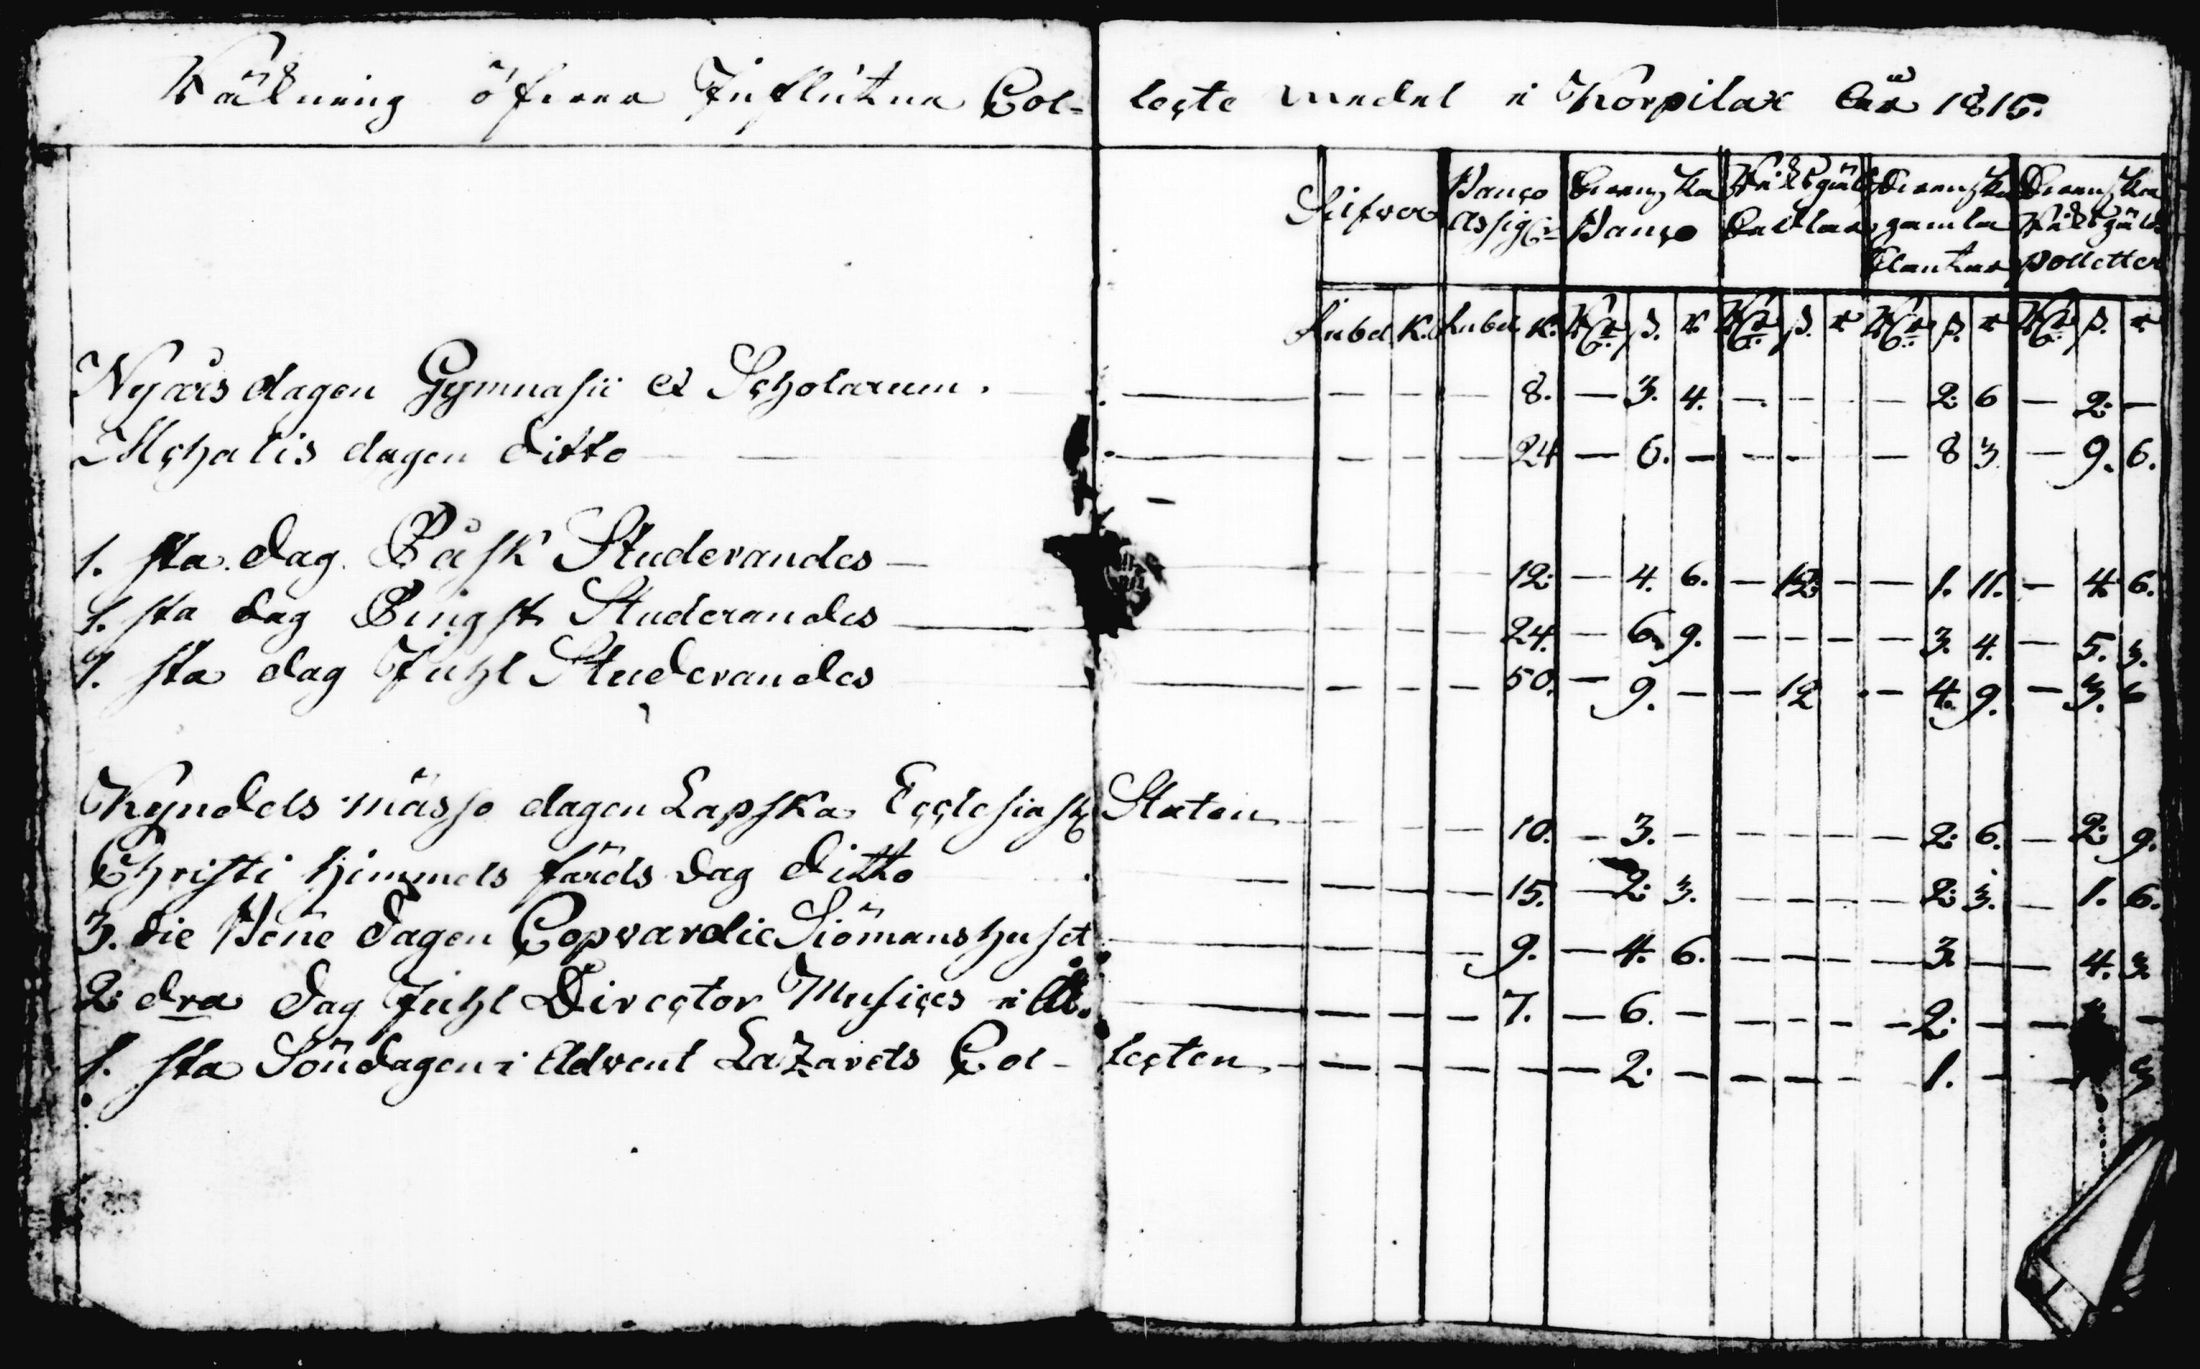 Räkning öfver Influtna Collecte medel i Korpilax År 1815.
Silfver | Banco Assign: | Svenska Banco | Riksgälds Sedlar | Svenska gamla Slantar | Svenska Riksgälds polletter
Rubel | K. | Rubel | K. | Rdr | ß. | r | Rdr | ß. | r | Rdr | ß. | r | Rdr | ß. | r
Nyårs dagen Gymnasii et Scholarum. — — — — 8. — 3. 4. — - - — 2. 6 — 2. —
Mchalis dagen ditto — — — — 24 — 6. — - - - — 8 3 — 9. 6.
1. sta. dag. Påsk Studerandes — — 12. — 4. 6. — 12. - — 1. 11. — 4. 6.
1. sta dag Pingst Studerandes — — 24. — 6. 9. - - - — 3. 4. — 5. 3.
1. sta dag Juhl Studerandes — — — — 50. — 9. — — 12 . — 4. 9. — 3. 6
Kyndels mässo dagen Lapska Ecclesiast Staten — — — — 10. — 3. — - - - — 2. 6. — 2. 9.
Christi Himmels färds dag ditto — — — — 15. — 2. 3. - - - — 2. 3. — 1. 6.
3. die Böne dagen Copvardie Siömanshuset — — — — 9. — 4. 6. — — — — 3. — — 4. 3.
2. dra dag Juhl Director Musices i Åbo — — — — 7. — 6. — — - - — 2. — — —
1. sta Söndagen i Advent Lazarets Collecten — — — — — — 2. — — — — — 1. — — 3